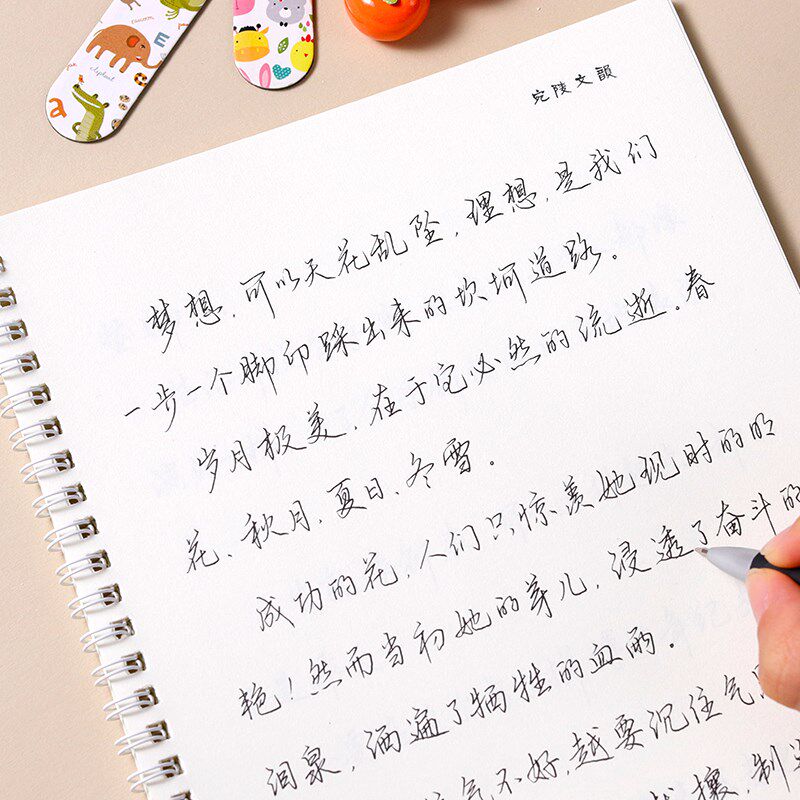 elephant
E
a
宛陵文韻
梦想,可以天花乱坠,理想,是我们
一步一个脚印踩出来的坎坷道路。
岁月极美,在于它必然的流逝。春
花、秋月、夏日、冬雪。
成功的花,人们只惊羡她现时的明
艳!然而当初她的芽儿,浸透了奋斗的
泪泉,洒遍了牺牲的血雨。
气不好,越要沉住气
壤,制